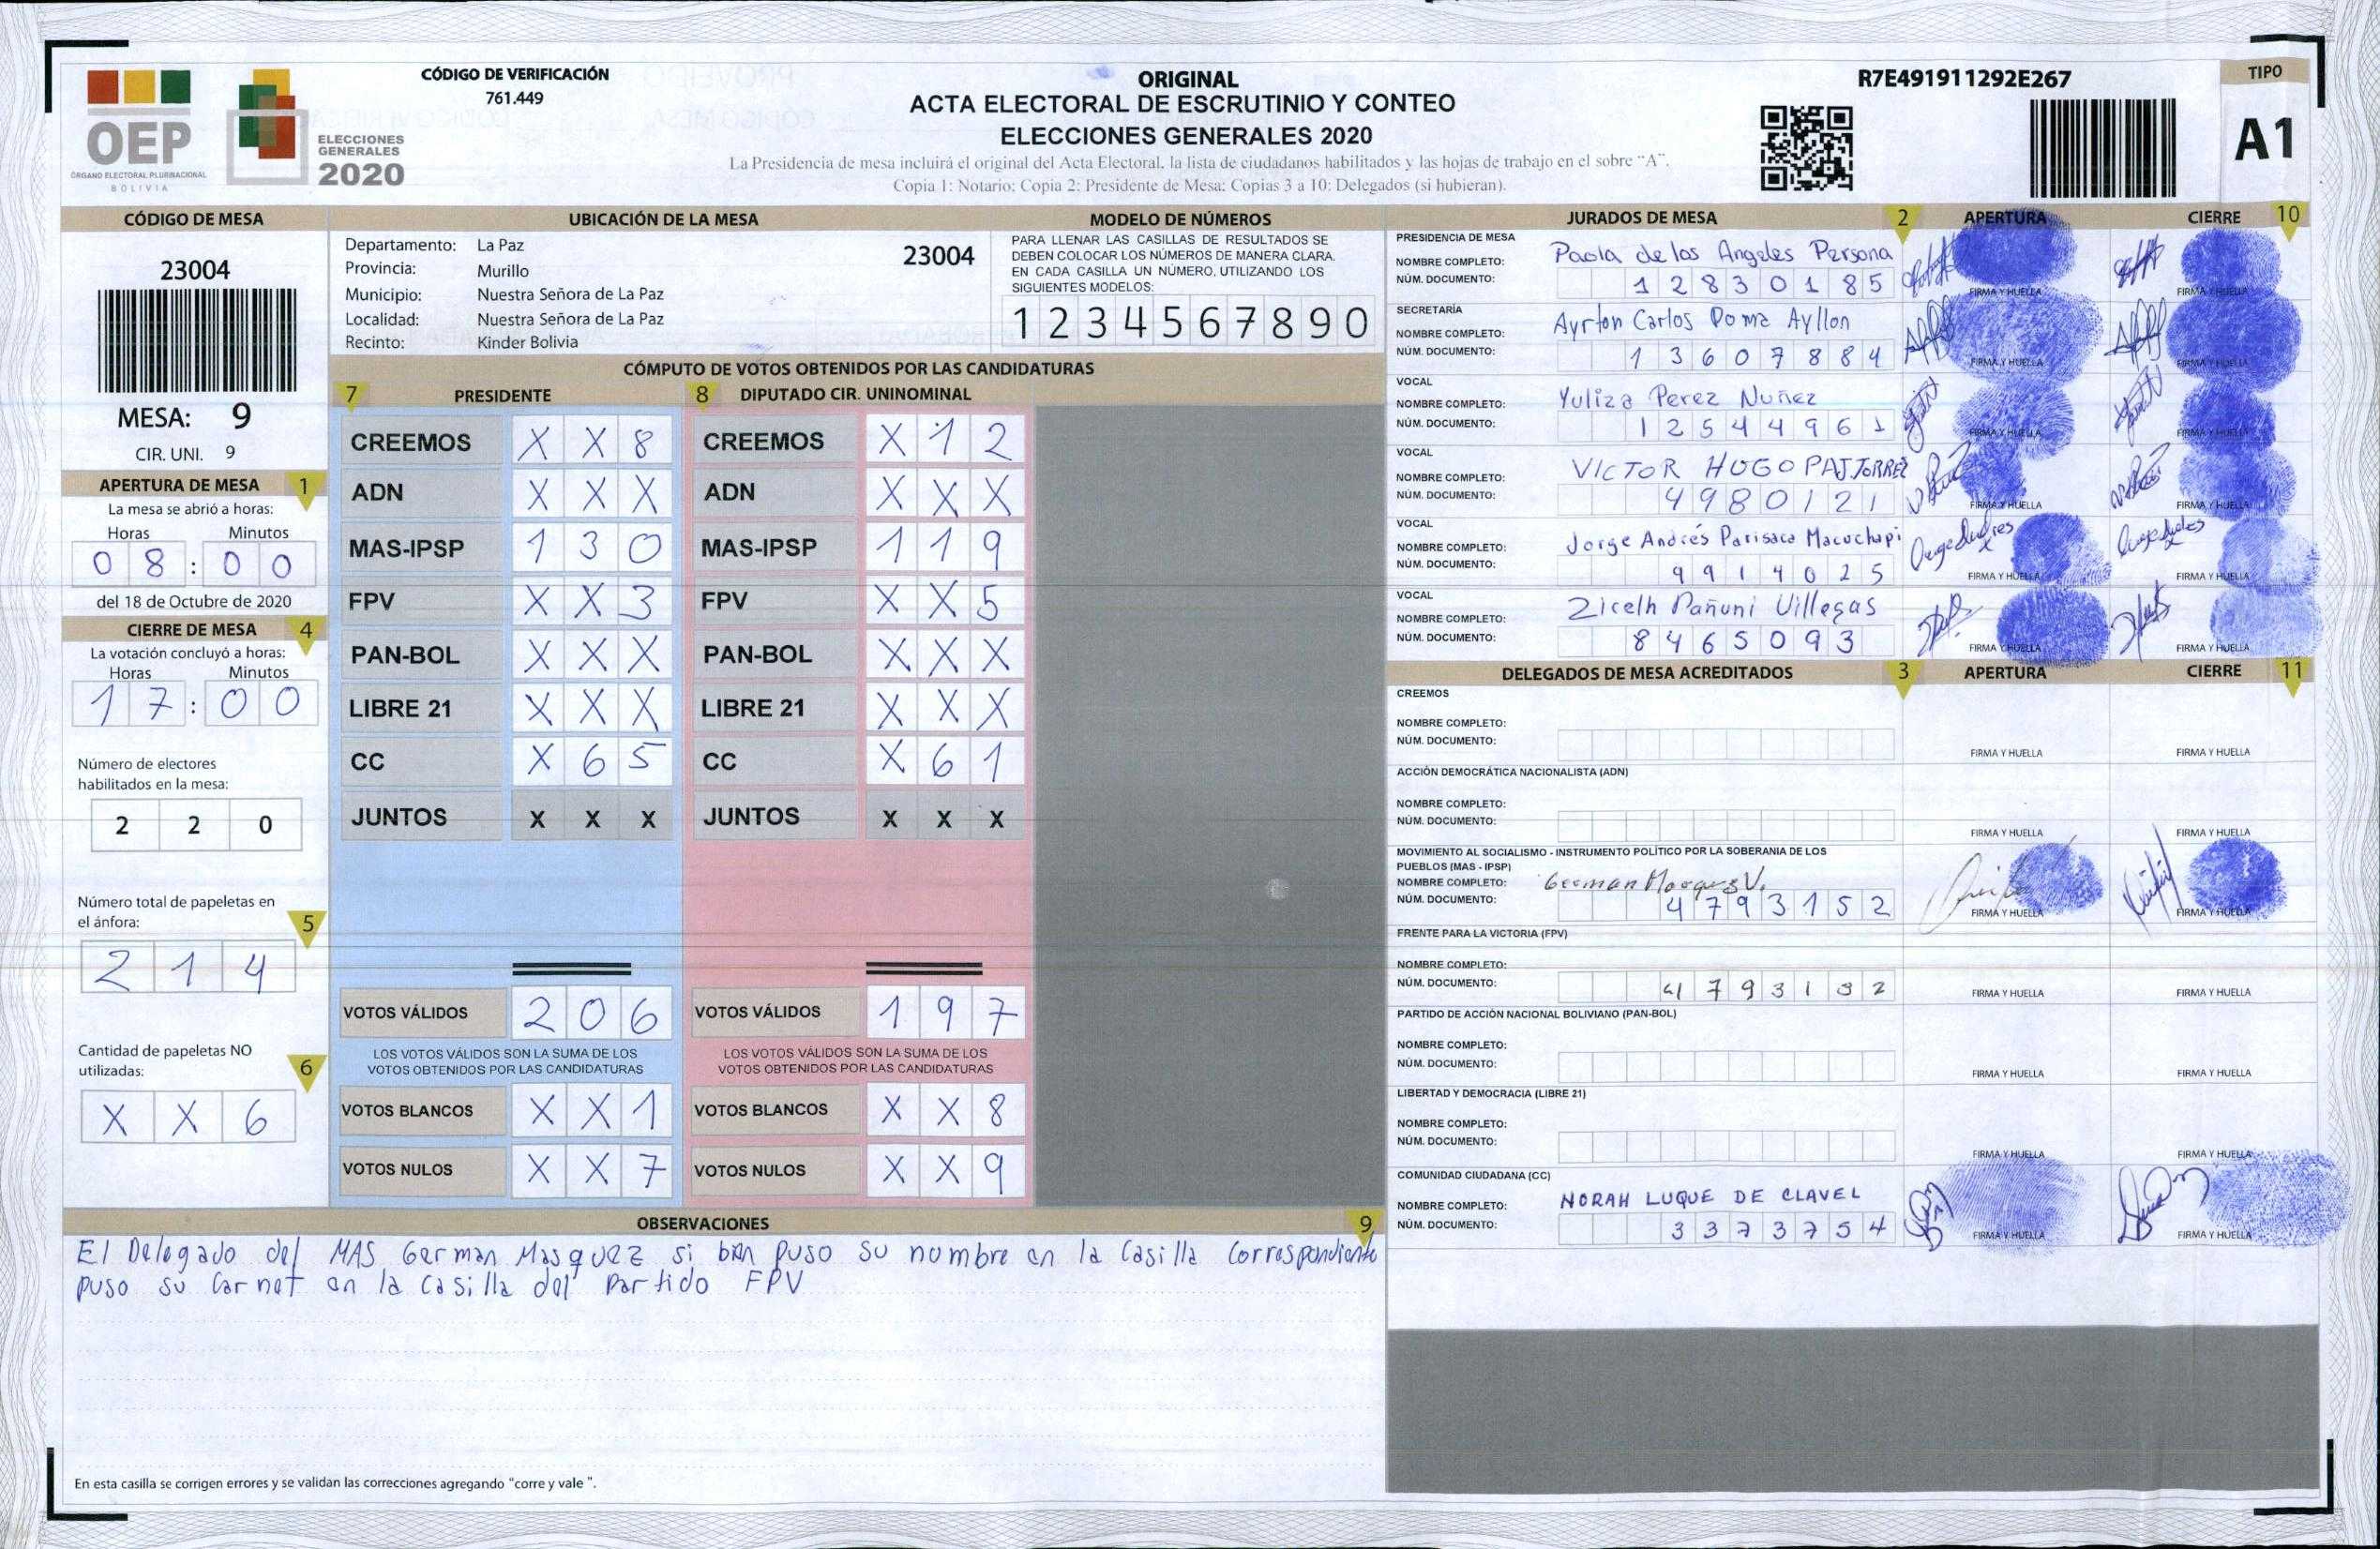 OEP
ÓRGANO ELECTORAL PLURINACIONAL
BOLIVIA
ELECCIONES
GENERALES
2020
CÓDIGO DE VERIFICACIÓN
761.449
ORIGINAL
ACTA ELECTORAL DE ESCRUTINIO Y CONTEO
ELECCIONES GENERALES 2020
La Presidencia de mesa incluirá el original del Acta Electoral, la lista de ciudadanos habilitados y las hojas de trabajo en el sobre "A".
Copia 1: Notario; Copia 2: Presidente de Mesa; Copias 3 a 10: Delegados (si hubieran).
R7E491911292E267
TIPO
A1
CÓDIGO DE MESA
23004
MESA: 9
CIR. UNI. 9
APERTURA DE MESA 1
La mesa se abrió a horas:
Horas Minutos
0 8 : 0 0
del 18 de Octubre de 2020
CIERRE DE MESA 4
La votación concluyó a horas:
Horas Minutos
1 7 : 0 0
Número de electores
habilitados en la mesa:
2 2 0
Número total de papeletas en
el ánfora: 5
2 1 4
Cantidad de papeletas NO
utilizadas: 6
X X 6
UBICACIÓN DE LA MESA
Departamento: La Paz 23004
Provincia: Murillo
Municipio: Nuestra Señora de La Paz
Localidad: Nuestra Señora de La Paz
Recinto: Kinder Bolivia
MODELO DE NÚMEROS
PARA LLENAR LAS CASILLAS DE RESULTADOS SE
DEBEN COLOCAR LOS NÚMEROS DE MANERA CLARA.
EN CADA CASILLA UN NÚMERO, UTILIZANDO LOS
SIGUIENTES MODELOS:
1 2 3 4 5 6 7 8 9 0
CÓMPUTO DE VOTOS OBTENIDOS POR LAS CANDIDATURAS
7 PRESIDENTE 8 DIPUTADO CIR. UNINOMINAL
CREEMOS X X 8 CREEMOS X 1 2
ADN X X X ADN X X X
MAS-IPSP 1 3 0 MAS-IPSP 1 1 9
FPV X X 3 FPV X X 5
PAN-BOL X X X PAN-BOL X X X
LIBRE 21 X X X LIBRE 21 X X X
CC X 6 5 CC X 6 1
JUNTOS X X X JUNTOS X X X
VOTOS VÁLIDOS 2 0 6 VOTOS VÁLIDOS 1 9 7
LOS VOTOS VÁLIDOS SON LA SUMA DE LOS LOS VOTOS VÁLIDOS SON LA SUMA DE LOS
VOTOS OBTENIDOS POR LAS CANDIDATURAS VOTOS OBTENIDOS POR LAS CANDIDATURAS
VOTOS BLANCOS X X 1 VOTOS BLANCOS X X 8
VOTOS NULOS X X 7 VOTOS NULOS X X 9
OBSERVACIONES 9
El Delegado del MAS German Masquez si bien puso su nombre en la Casilla Correspondiente
puso su Carnet en la Casilla del Partido FPV
En esta casilla se corrigen errores y se validan las correcciones agregando "corre y vale ".
JURADOS DE MESA 2 APERTURA CIERRE 10
PRESIDENCIA DE MESA
NOMBRE COMPLETO: Paola de los Angeles Persona
NÚM. DOCUMENTO: 1 2 8 3 0 1 8 5
FIRMA Y HUELLA FIRMA Y HUELLA
SECRETARÍA
NOMBRE COMPLETO: Ayrton Carlos Poma Ayllon
NÚM. DOCUMENTO: 1 3 6 0 7 8 8 4
FIRMA Y HUELLA FIRMA Y HUELLA
VOCAL
NOMBRE COMPLETO: Yuliza Perez Nuñez
NÚM. DOCUMENTO: 1 2 5 4 4 9 6 1
FIRMA Y HUELLA FIRMA Y HUELLA
VOCAL
NOMBRE COMPLETO: VICTOR HUGO
NÚM. DOCUMENTO: 4 9 8 0 1 2 1
FIRMA Y HUELLA FIRMA Y HUELLA
VOCAL
NOMBRE COMPLETO: Jorge Andrés Parisaca Macuchapi
NÚM. DOCUMENTO: 9 9 1 4 0 2 5
FIRMA Y HUELLA FIRMA Y HUELLA
VOCAL
NOMBRE COMPLETO: Zicelh Pañuni Villegas
NÚM. DOCUMENTO: 8 4 6 5 0 9 3
FIRMA Y HUELLA FIRMA Y HUELLA
DELEGADOS DE MESA ACREDITADOS 3 APERTURA CIERRE 11
CREEMOS
NOMBRE COMPLETO:
NÚM. DOCUMENTO:
FIRMA Y HUELLA FIRMA Y HUELLA
ACCIÓN DEMOCRÁTICA NACIONALISTA (ADN)
NOMBRE COMPLETO:
NÚM. DOCUMENTO:
FIRMA Y HUELLA FIRMA Y HUELLA
MOVIMIENTO AL SOCIALISMO - INSTRUMENTO POLÍTICO POR LA SOBERANIA DE LOS
PUEBLOS (MAS - IPSP)
NOMBRE COMPLETO: German V.
NÚM. DOCUMENTO: 4 7 9 3 1 5 2
FIRMA Y HUELLA FIRMA Y HUELLA
FRENTE PARA LA VICTORIA (FPV)
NOMBRE COMPLETO:
NÚM. DOCUMENTO: 4 7 9 3 1 3 2
FIRMA Y HUELLA FIRMA Y HUELLA
PARTIDO DE ACCIÓN NACIONAL BOLIVIANO (PAN-BOL)
NOMBRE COMPLETO:
NÚM. DOCUMENTO:
FIRMA Y HUELLA FIRMA Y HUELLA
LIBERTAD Y DEMOCRACIA (LIBRE 21)
NOMBRE COMPLETO:
NÚM. DOCUMENTO:
FIRMA Y HUELLA FIRMA Y HUELLA
COMUNIDAD CIUDADANA (CC)
NOMBRE COMPLETO: NORAH LUQUE DE CLAVEL
NÚM. DOCUMENTO: 3 3 7 3 7 5 4
FIRMA Y HUELLA FIRMA Y HUELLA